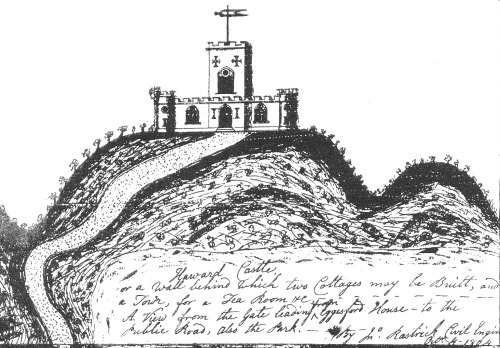 Upward Castle,
or a Wall behind which two Cottages may be Built, and
a Tower, for a Tea Room &c
A View from the Gate leading from House – to the
Public Road, also the Park. – By Jno. Rastrick Civil Engin
1804